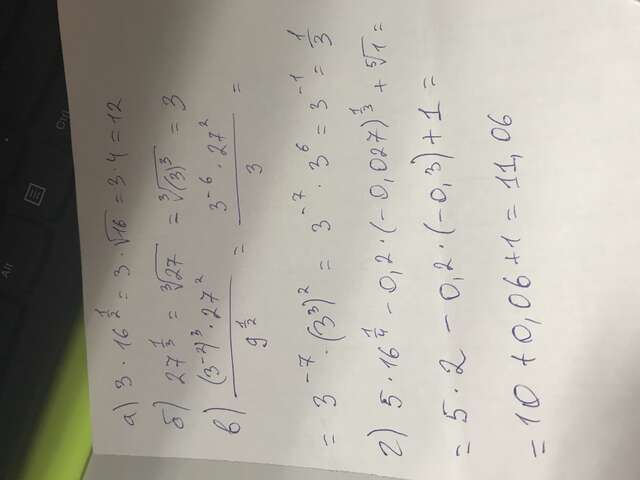 а) 3 · 16^(1/2) = 3 · √16 = 3 · 4 = 12
б) 27^(1/3) = ∛27 = ∛(3)^3 = 3
в) ((3^-2)^3 · 27^2) / 9^(1/2) = (3^-6 · 27^2) / 3 =
= 3^-7 · (3^3)^2 = 3^-7 · 3^6 = 3^-1 = 1/3
г) 5 · 16^(1/4) - 0,2 · (-0,027)^(1/3) + ⁵√1 =
= 5 · 2 - 0,2 · (-0,3) + 1 =
= 10 + 0,06 + 1 = 11,06
Alt
Ctrl